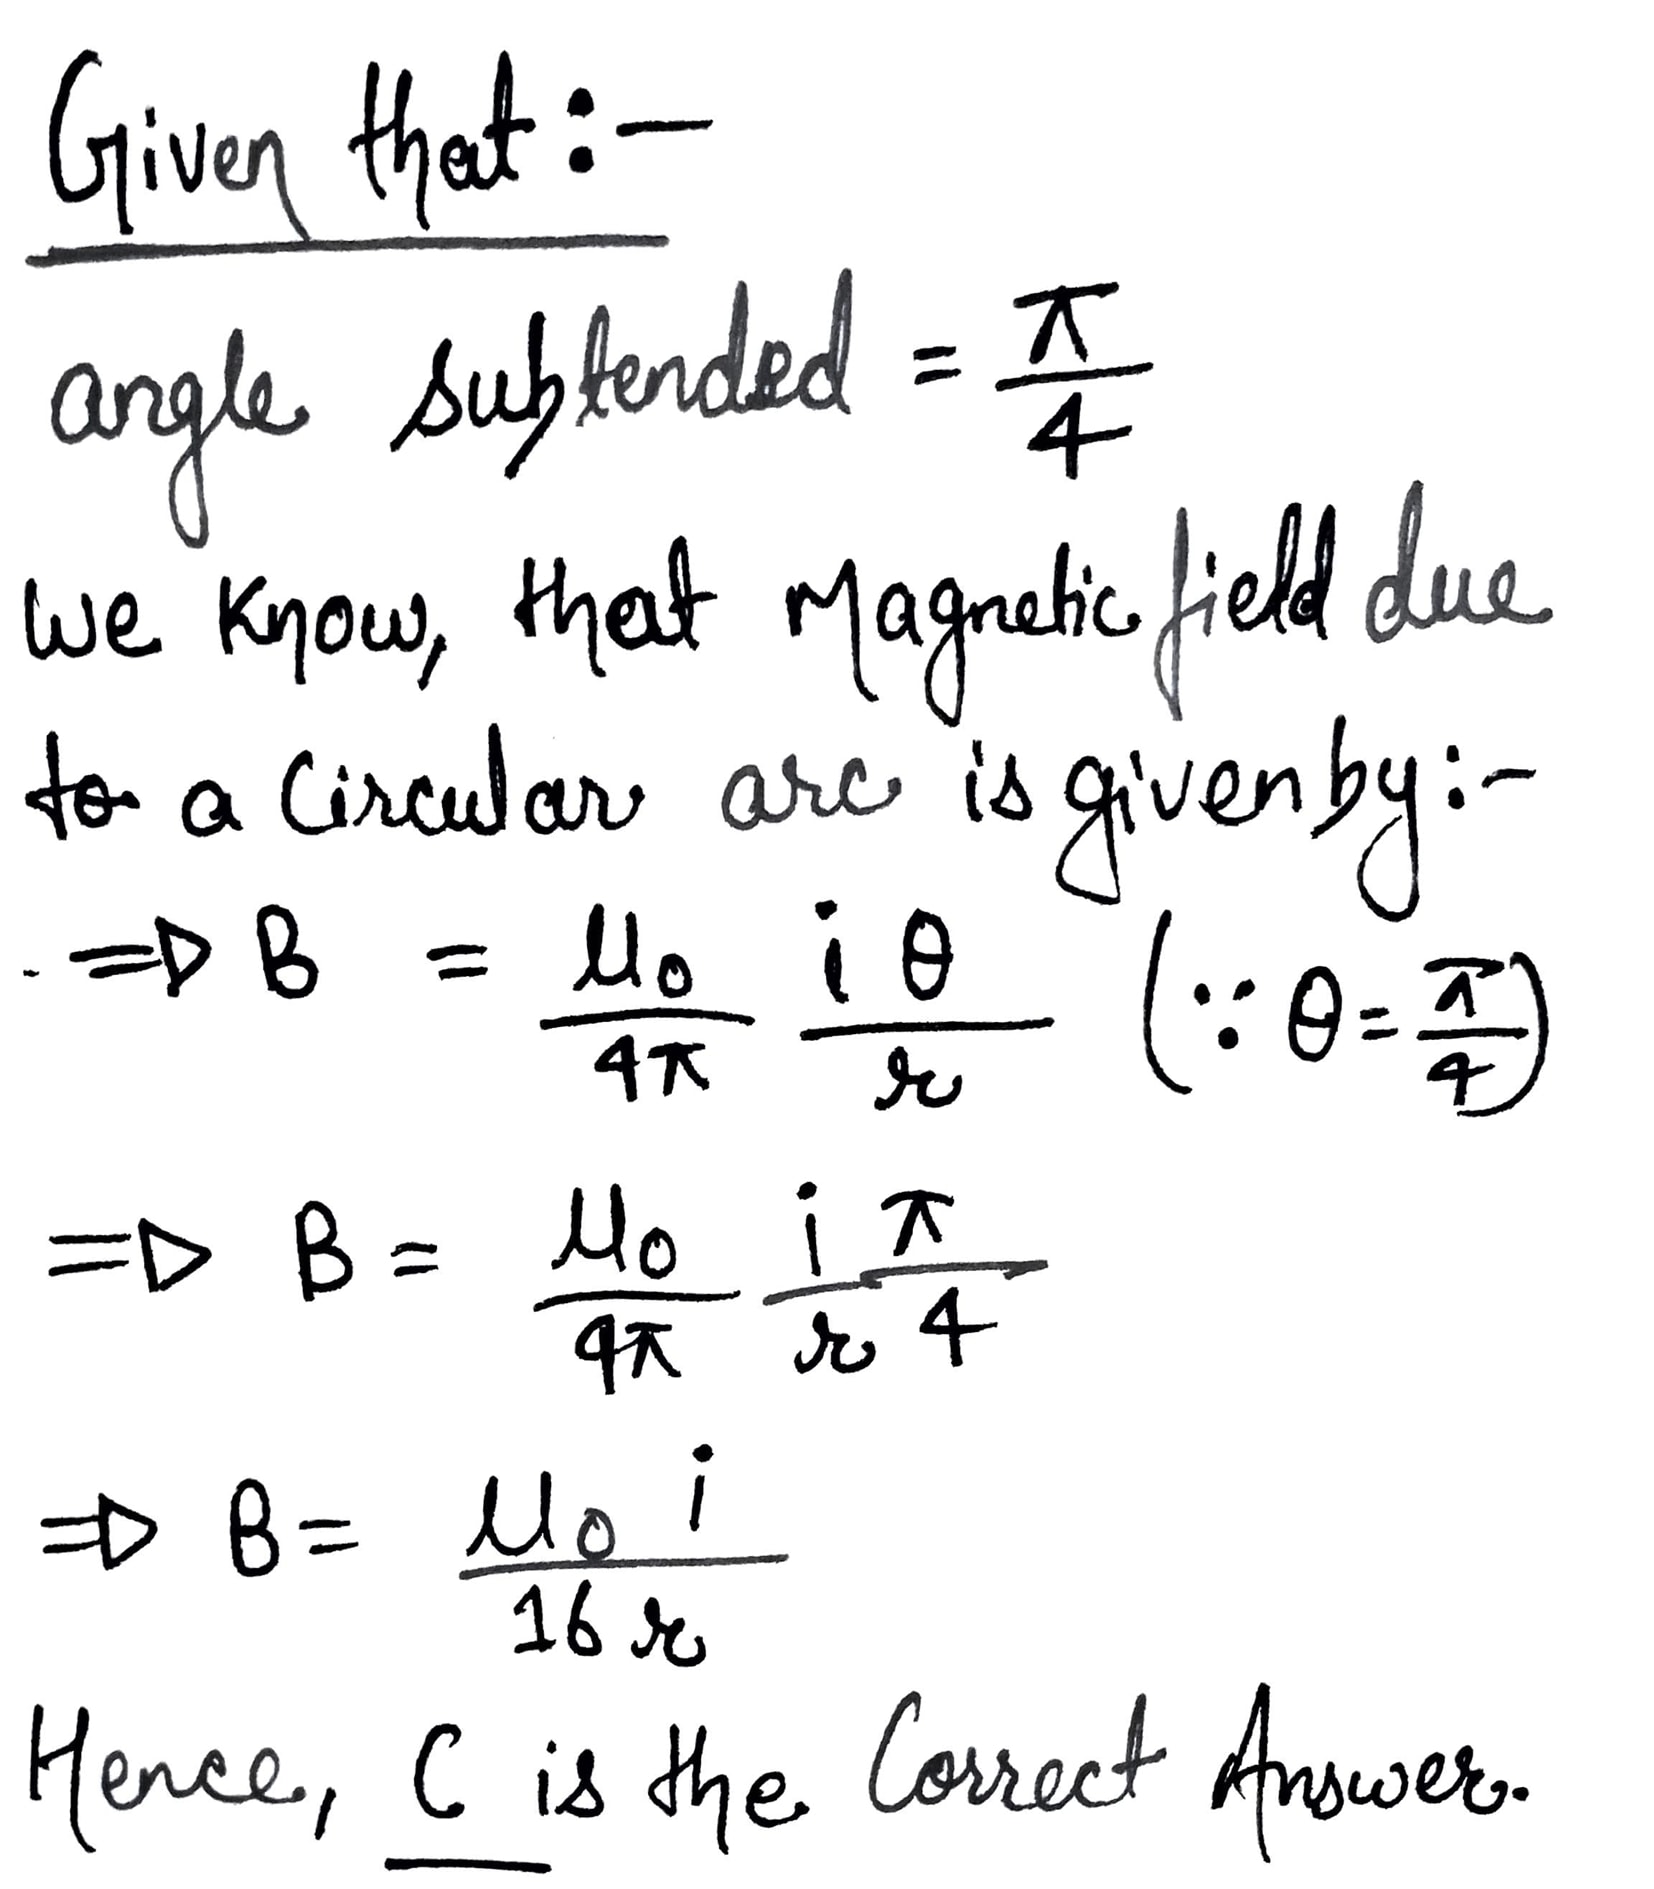 Given that :-
angle subtended = π/4
we know, that Magnetic field due
to a Circular arc is given by :-
⇒ B = μ₀/4π iθ/r (∵ θ = π/4)
⇒ B = μ₀/4π i/r π/4
⇒ B = μ₀ i/16 r
Hence, C is the Correct Answer.